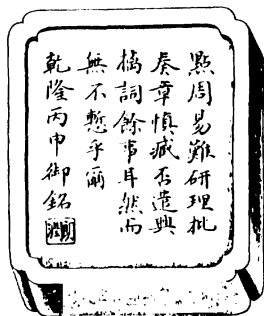 點周易難研理批
奏章慎臧否遣興
摛詞餘事耳然而
無不慙乎爾
乾隆丙申御銘